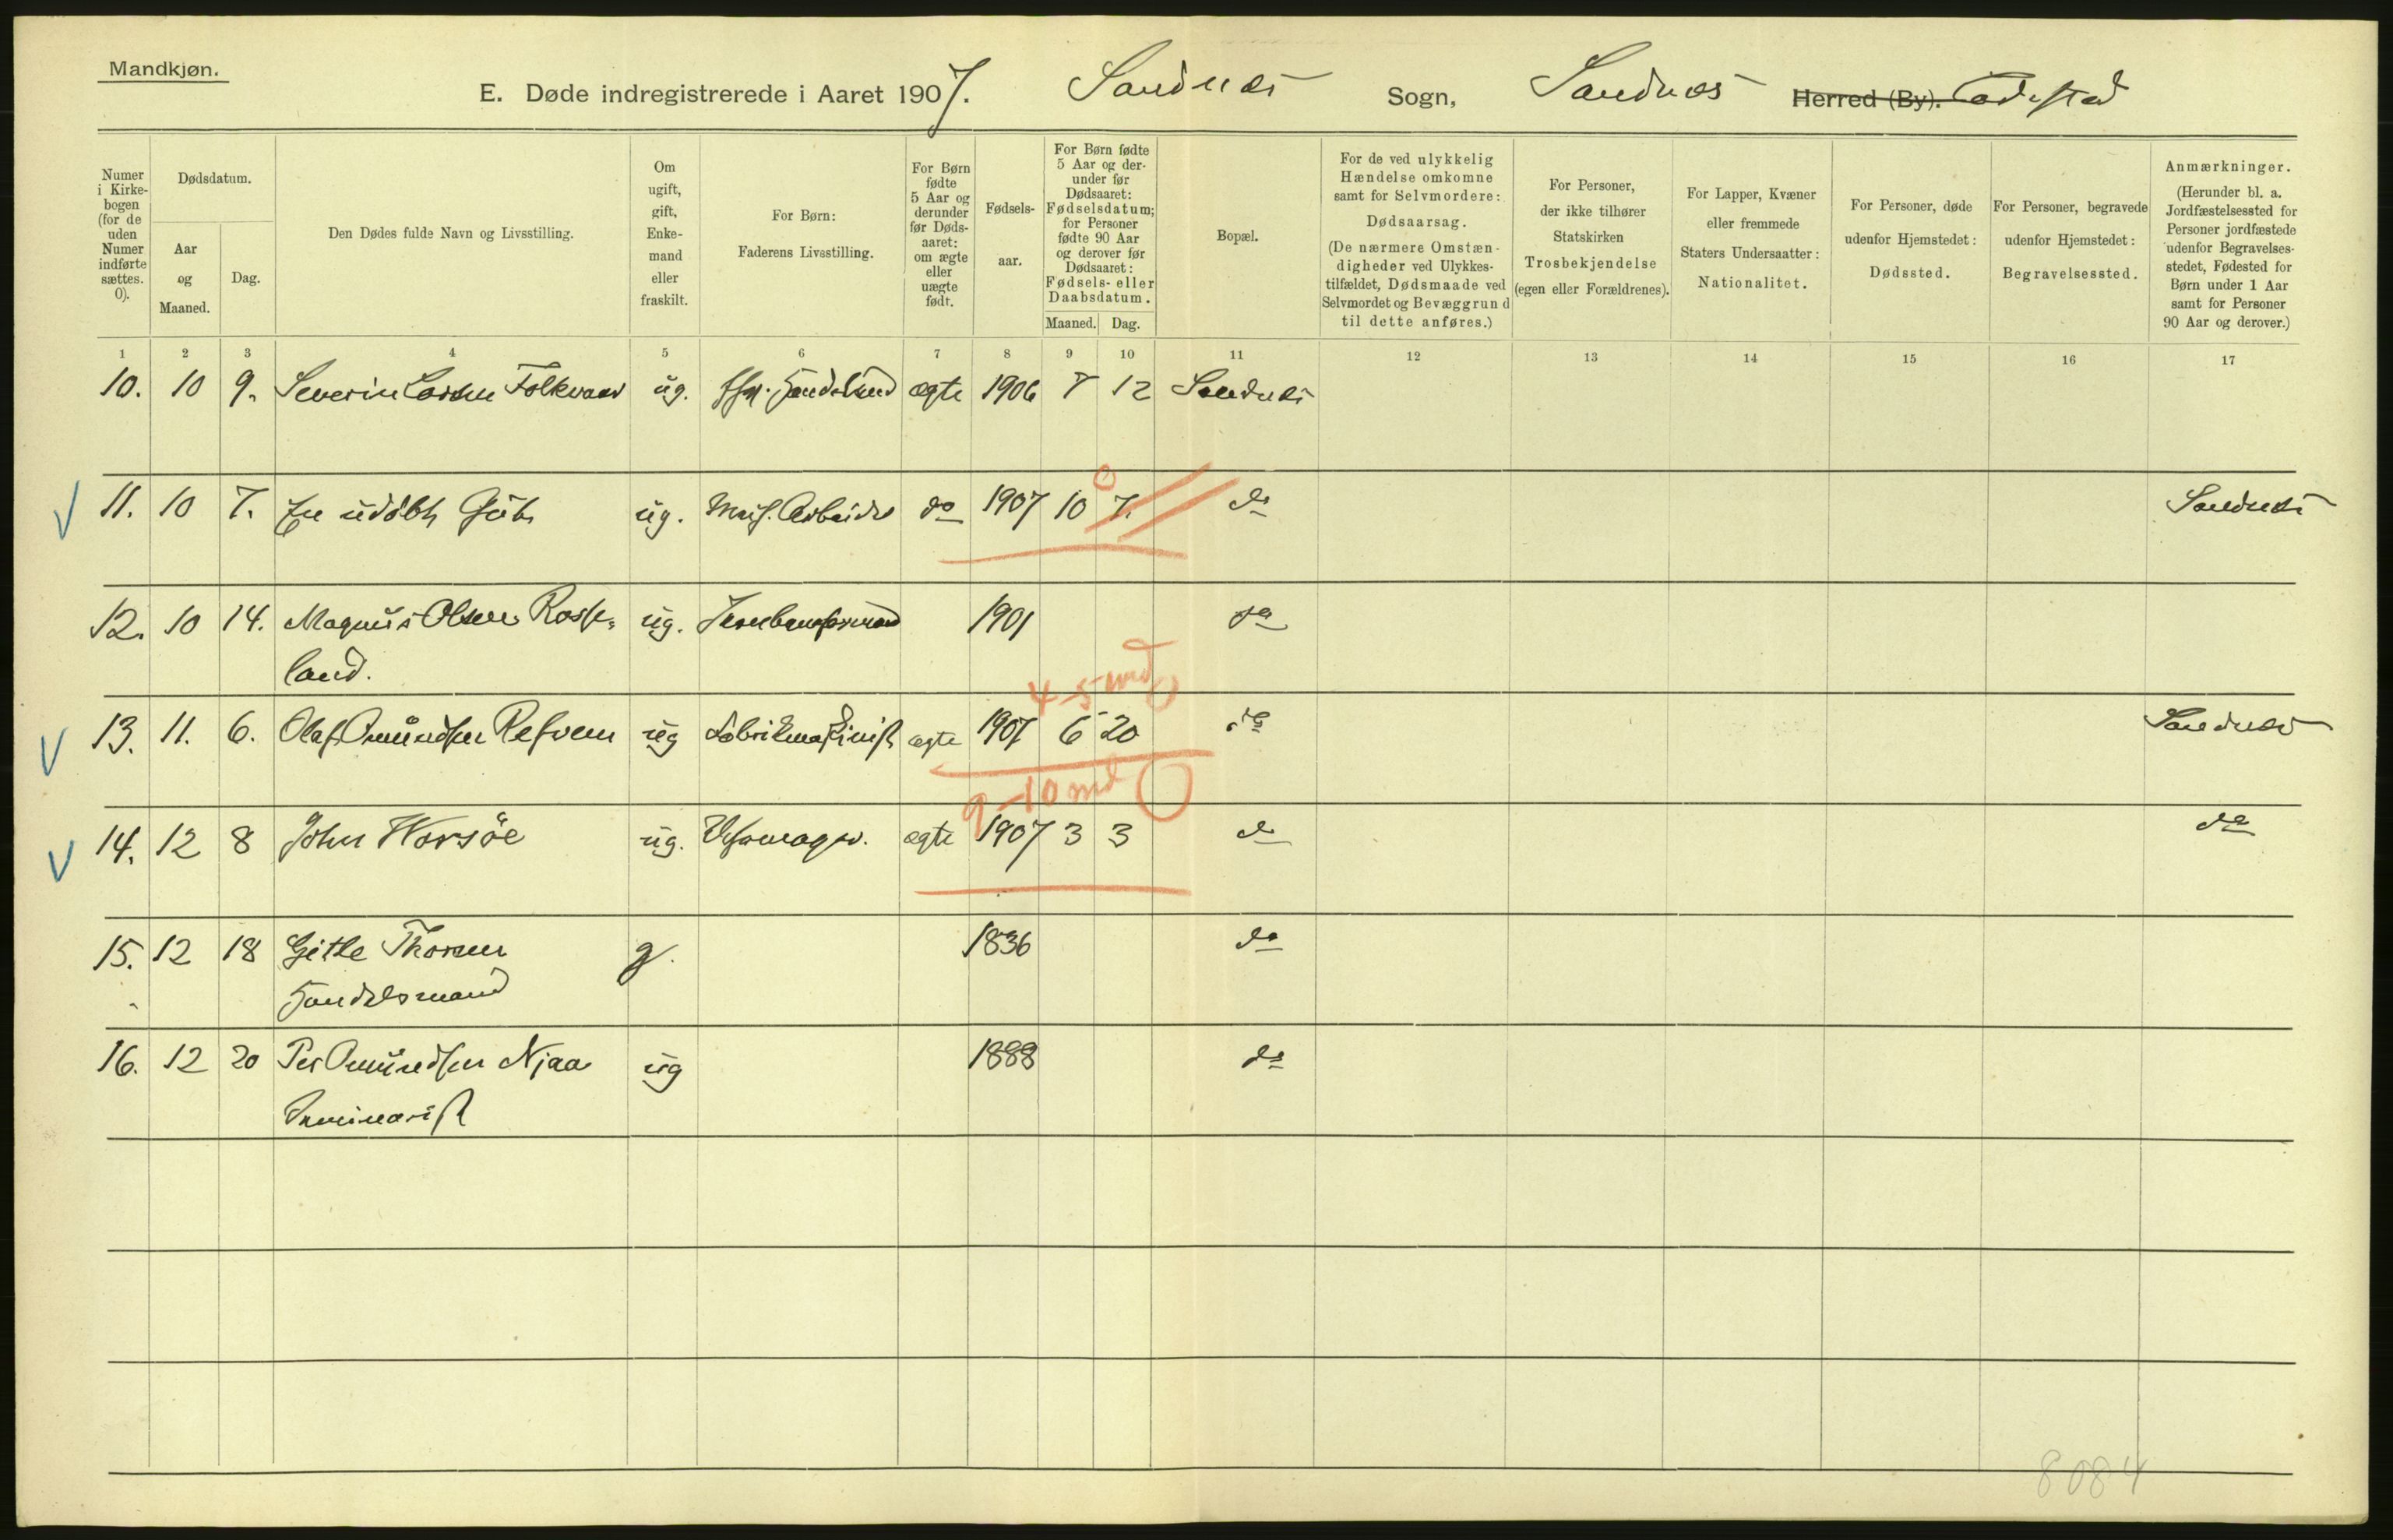 Mandkjøn.
E. Døde indregistrerede i Aaret 1907. Sandnæs Sogn, Sandnæs Herred (By). Ladested
Numer i Kirkebogen (for de uden Numer indførte sættes. 0).
Dødsdatum.
Aar og Maaned.
Dag.
Den Dødes fulde Navn og Livsstilling.
Om ugift, gift, Enkemand eller fraskilt.
For Børn: Faderens Livsstilling.
For Børn fødte 5 Aar og derunder før Dødsaaret: om ægte eller uægte født.
Fødselsaar.
For Børn fødte 5 Aar og derunder før Dødsaaret: Fødselsdatum; for Personer fødte 90 Aar og derover før Dødsaaret: Fødsels- eller Daabsdatum.
Maaned. Dag.
Bopæl.
For de ved ulykkelig Hændelse omkomne samt for Selvmordere: Dødsaarsag. (De nærmere Omstændigheder ved Ulykkestilfældet, Dødsmaade ved Selvmordet og Bevæggrund til dette anføres.)
For Personer, der ikke tilhører Statskirken Trosbekjendelse (egen eller Forældrenes).
For Lapper, Kvæner eller fremmede Staters Undersaatter: Nationalitet.
For Personer, døde udenfor Hjemstedet: Dødssted.
For Personer, begravede udenfor Hjemstedet: Begravelsessted.
Anmærkninger. (Herunder bl. a. Jordfæstelsessted for Personer jordfæstede udenfor Begravelsesstedet, Fødested for Børn under 1 Aar samt for Personer 90 Aar og derover.)
1 2 3 4 5 6 7 8 9 10 11 12 13 14 15 16 17
10. 10 9. Severin Larsen Folkvord ug. ægte 1906 7 12 Sandnæs
11. 10 7. En udøbt Gut ug. Arbeider do 1907 10 7. do Sandnæs
0
12. 10 14. Magnus Olsen Rosse-
land. ug. Jernbaneformand 1901 do
4-5 md 0
13. 11. 6. Olaf Omundsen Refvem ug Fabrikmaskinist ægte 1907 6 20 do Sandnæs
9-10 md 0
14. 12 8 John Worsöe ug. Uhrmager. ægte 1907 3 3 do do
15. 12 18 Gitle Thorsen g. 1836 do
Handelsmand
16. 12 20 Per Omundsen Njaa ug 1888 do
Seminarist
8084